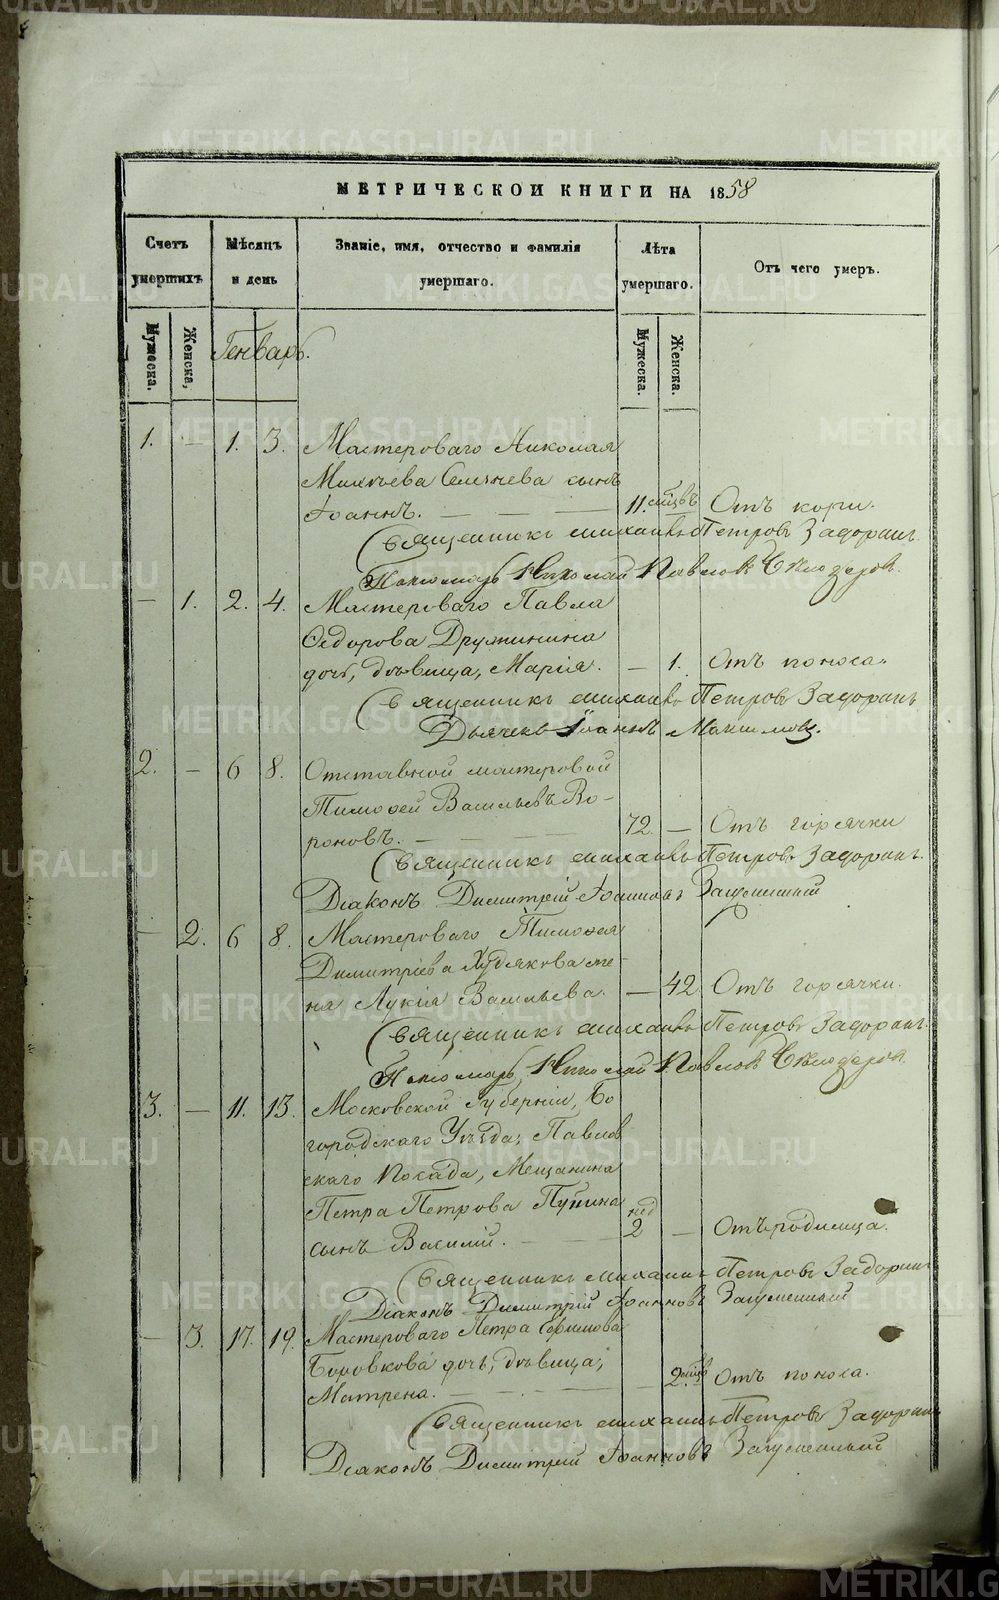 МЕТРИЧЕСКОЙ КНИГИ НА 1858
Счетъ умершихъ
Мѣсяцъ и день
Званіе, имя, отчество и фамилія умершаго.
Лѣта умершаго.
Отъ чего умеръ.
Мужеска.
Женска.
Генварь.
Мужеска.
Женска.
1. — 1. 3. Мастероваго Николая
сынъ
Іоаннъ. — 11. мѣсцвъ Отъ кори.
Священникъ Михаилъ Петровъ Задоринъ.
Пономарь Николай Павловъ
— 1. 2. 4. Мастероваго Павла
Ѳедорова Дружинина
дочь, дѣвица, Марія. — 1. Отъ поноса.
Священникъ Михаилъ Петровъ Задоринъ
Дьячекъ Іоаннъ Максимовъ.
2. — 6 8. Отставной мастеровой
Тимоѳей Васильевъ Во-
роновъ. — 72. — Отъ горячки
Священникъ Михаилъ Петровъ Задоринъ.
Діаконъ Димитрій Іоанновъ
— 2. 6 8. Мастероваго Тимоѳея
Димитріева Худякова же-
на Лукія Васильева. — 42. Отъ горячки.
Священникъ Михаилъ Петровъ Задоринъ.
Пономарь Николай Павловъ
3. — 11. 13. Московской Губерніи, Бо
городскаго Уѣзда, Павлов
скаго Посада, Мещанина
Петра Петрова
сынъ Василій. — нед 2 — Отъ родимца.
Священникъ Михаилъ Петровъ Задоринъ
Діаконъ Димитрій Іоанновъ
— 3. 17. 19. Мастероваго Петра Ефимова
Боровкова дочь, дѣвица,
Матрена. — 2. мѣсцв Отъ поноса.
Священникъ Михаилъ Петровъ Задоринъ
Діаконъ Димитрій Іоанновъ
METRIKI.GASO-URAL.RU